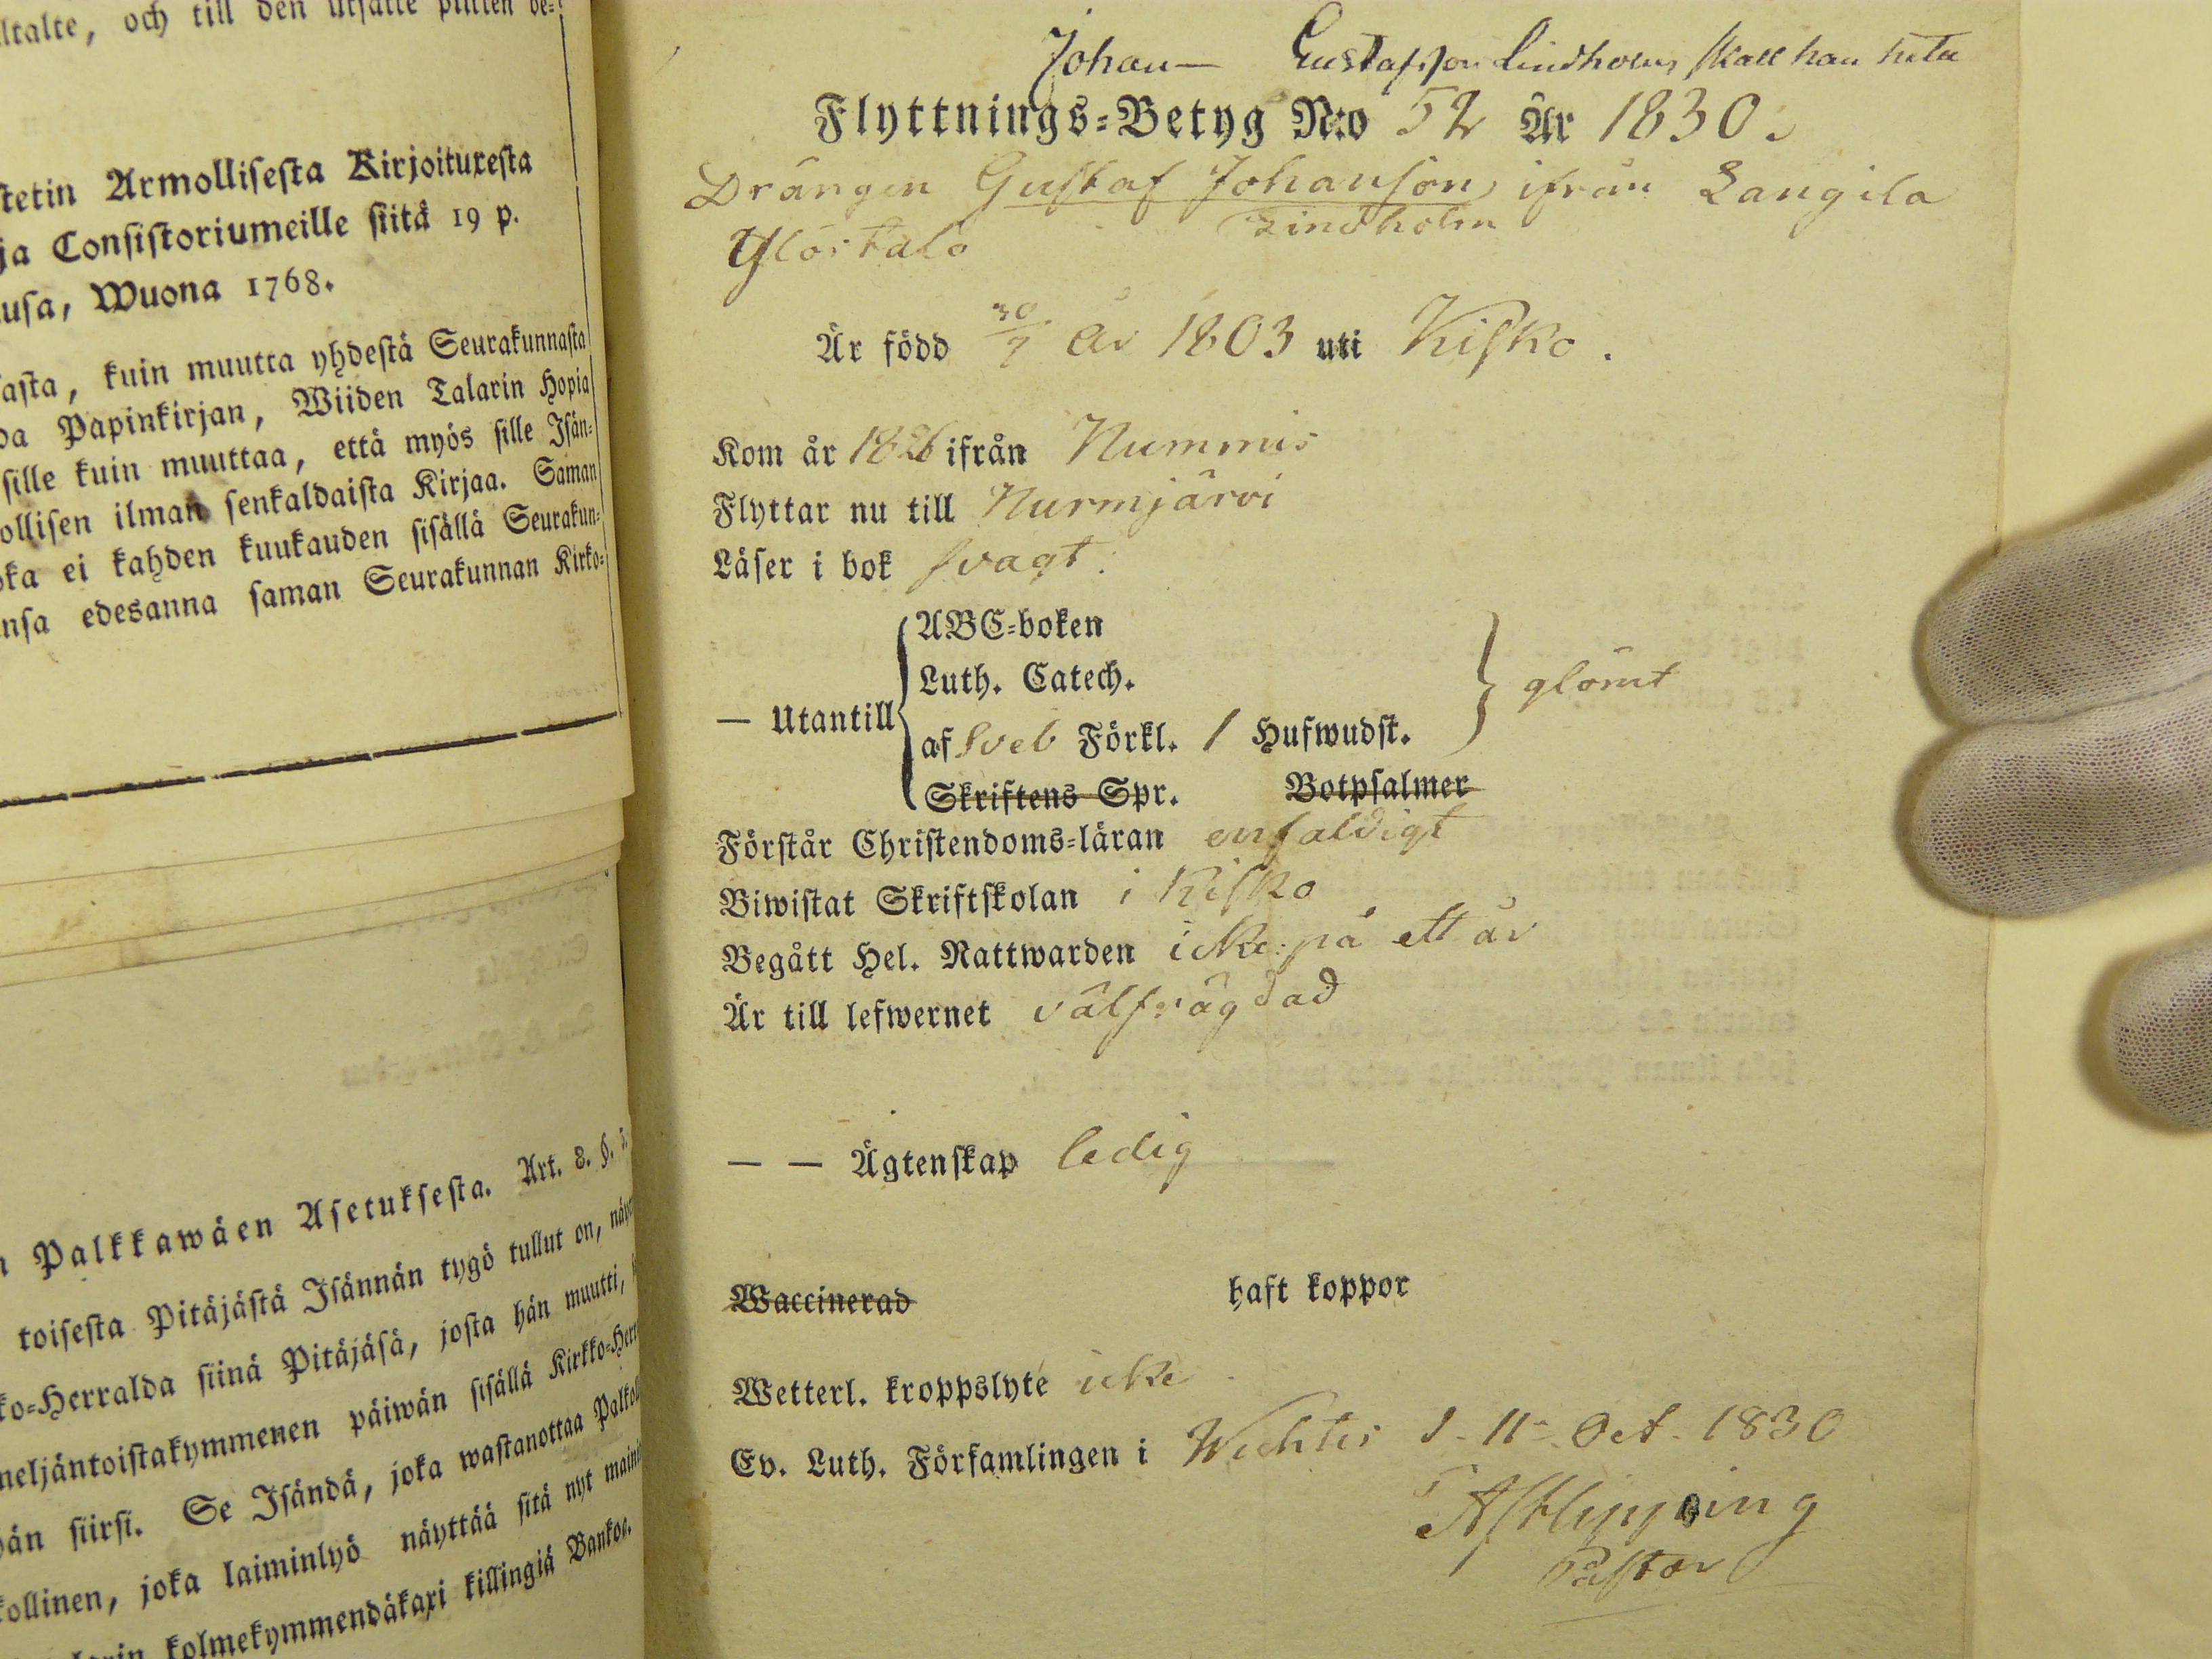 ltalte, och till den utsatte plikten be-
stetin Armollisesta Kirjoituxesta
ja Consistoriumeille siitä 19 p.
usa, Wuona 1768.
asta, kuin muutta yhdestä Seurakunnasta
oa Papinkirjan, Wiiden Talarin Hopia
sille kuin muuttaa, että myös sille Isän-
ollisen ilman senkaldaista Kirjaa. Saman
oka ei kahden kuukauden sisällä Seurakun-
nsa edesanna saman Seurakunnan Kirko-
n Palkkawäen Asetuksesta. Art. 8. §.
toisesta Pitäjästä Isännän tygö tullut on, näyt
ko-Herralda siinä Pitäjäsä, josta hän muutti,
neljäntoistakymmenen päiwän sisällä Kirkko-Herr
hän siirsi. Se Isändä, joka wastanottaa Palkol
kollinen, joka laiminlyö näyttää sitä nyt maini
larin kolmekymmendäkaxi killingiä Bankoa.
Johan — Gustafsson Lindholm skall han heta
Flyttnings-Betyg N:o 52 År 1830.
Drängen Gustaf Johanson ifrån Langila
Lindholm
Ylöstalo
Är född 30/7 år 1803 uti Kisko.
Kom år 1826 ifrån Nummis
Flyttar nu till Nurmjärvi
Läser i bok svagt.
— Utantill
ABC-boken
Luth. Catech.
glömt
af Sveb Förkl. 1 Hufwudst.
Skriftens Spr. Botpsalmer
Förstår Christendoms-läran enfaldigt
Biwistat Skriftskolan i Kisko
Begått Hel. Nattwarden icke på ett år
Är till lefwernet välfrägdad
— — Ägtenskap ledig
Waccinerad haft koppor
Wetterl. kroppslyte icke
Ev. Luth. Församlingen i Wichtis d. 11 Oct. 1830
Pastor